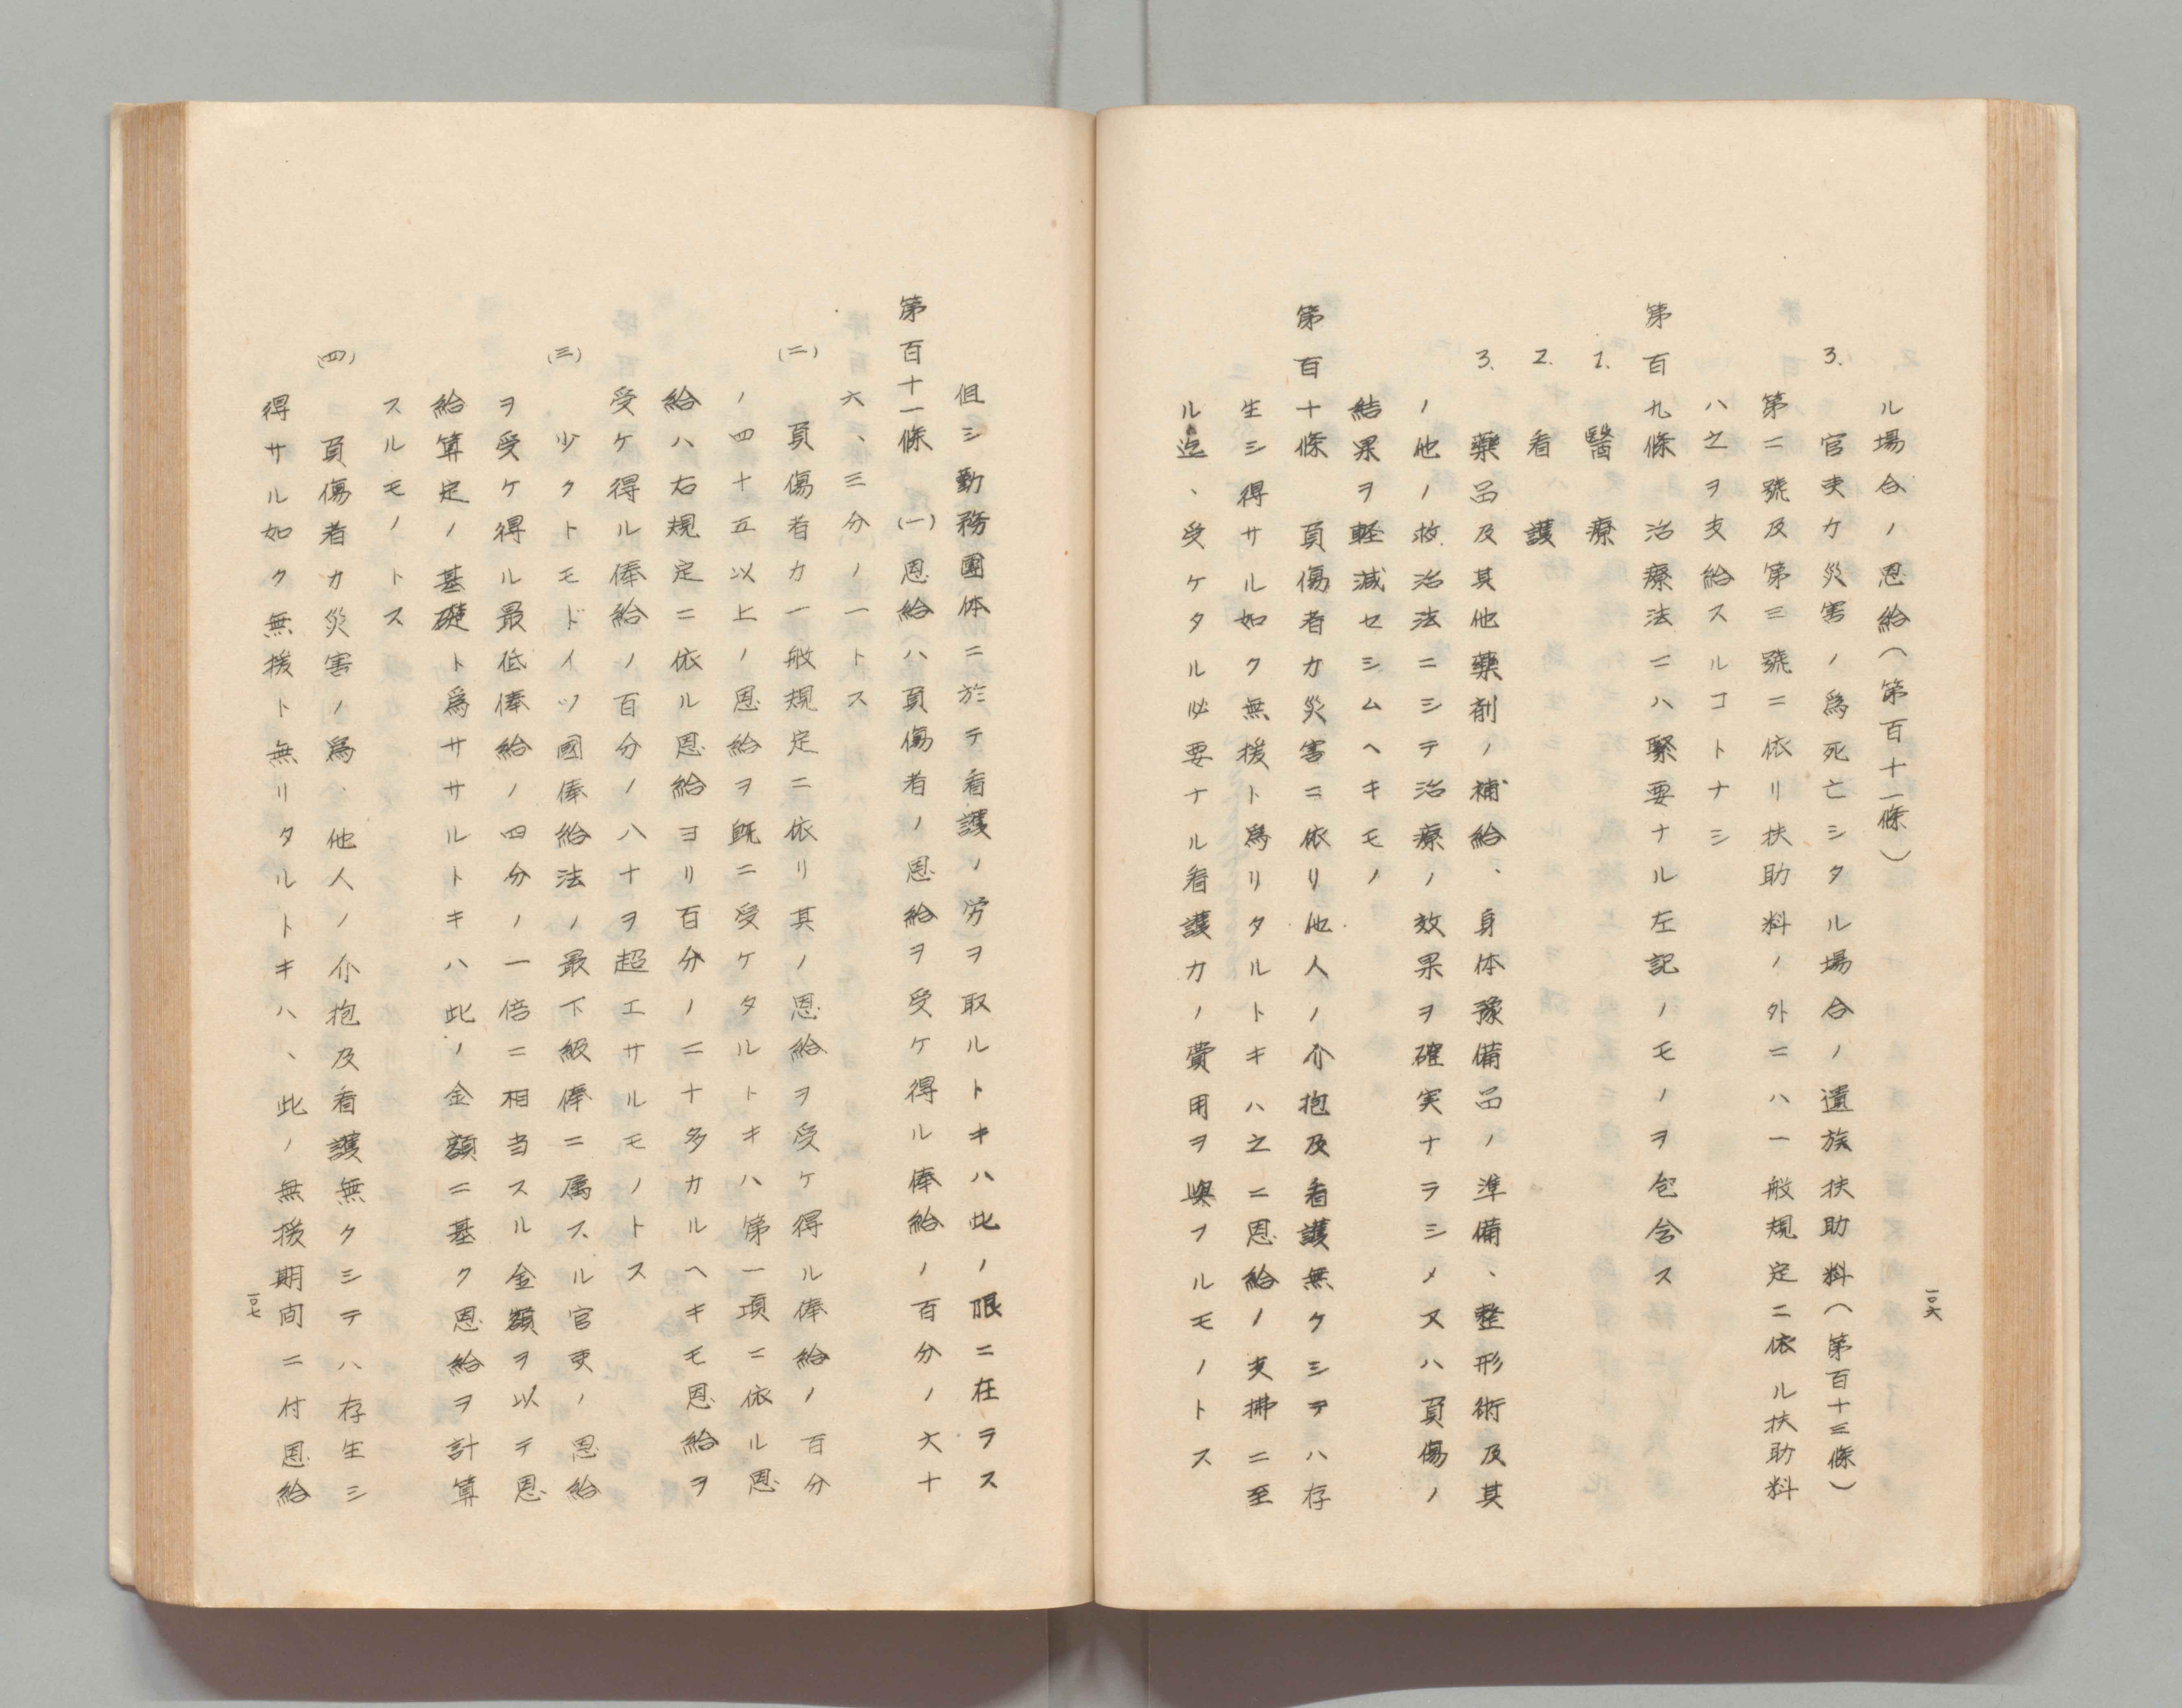 ル場合ノ恩給(第百十一條)
3. 官吏カ災害ノ爲死亡シタル場合ノ遺族扶助料(第百十三條)
第二號及第三號ニ依リ扶助料ノ外ニハ一般規定ニ依ル扶助料
ハ之ヲ支給スルコトナシ
第百九條 治療法ニハ緊要ナル左記ノモノヲ包含ス
1. 醫療
2. 看護
3. 藥品及其他藥剤ノ補給、身体豫備品ノ準備、整形術及其
ノ他ノ救治法ニシテ治療ノ效果ヲ確実ナラシメ又ハ負傷ノ
結果ヲ軽減セシムヘキモノ
第百十條 負傷者カ災害ニ依リ他人ノ介抱及看護無クシテハ存
生シ得サル如ク無援ト爲リタルトキハ之ニ恩給ノ支拂ニ至
ル迄、受ケタル必要ナル看護カノ費用ヲ與フルモノトス
一〇六
但シ勤務團体ニ於テ看護ノ労ヲ取ルトキハ此ノ限ニ在ラス
第百十一條 (一)恩給ハ負傷者ノ恩給ヲ受ケ得ル俸給ノ百分ノ六十
六、三分ノ一トス
(二) 負傷者カ一般規定ニ依リ其ノ恩給ヲ受ケ得ル俸給ノ百分
ノ四十五以上ノ恩給ヲ既ニ受ケタルトキハ第一項ニ依ル恩
給ハ右規定ニ依ル恩給ヨリ百分ノ二十多カルヘキモ恩給ヲ
受ケ得ル俸給ノ百分ノ八十ヲ超エサルモノトス
(三) 少クトモドイツ國俸給法ノ最下級俸ニ属スル官吏ノ恩給
ヲ受ケ得ル最低俸給ノ四分ノ一倍ニ相当スル金額ヲ以テ恩
給算定ノ基礎ト爲ササルトキハ此ノ金額ニ基ク恩給ヲ計算
スルモノトス
(四) 負傷者カ災害ノ爲、他人ノ介抱及看護無クシテハ存生シ
得サル如ク無援ト無リタルトキハ、此ノ無援期间ニ付恩給
一〇七